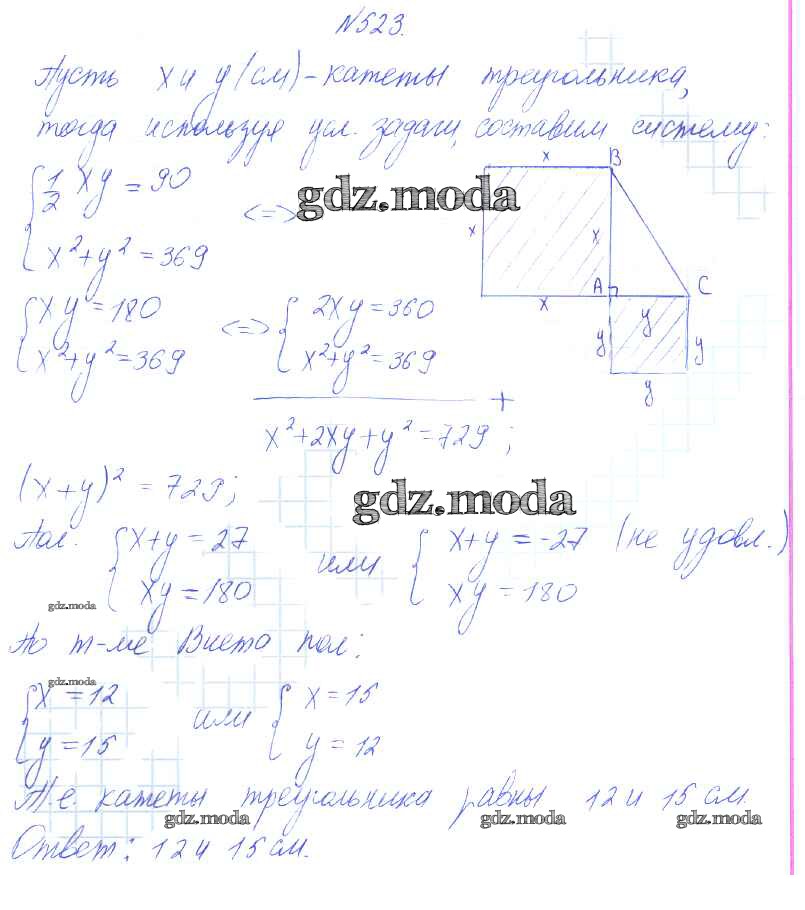 №523.
Пусть x и y (см) - катеты треугольника,
тогда используя усл. задачи, составим систему:
{ 1/2 xy = 90
x² + y² = 369 <=>
gdz.moda
x B
x x
A C
x y
y y
y
{ xy = 180
x² + y² = 369 <=> { 2xy = 360
x² + y² = 369
+
x² + 2xy + y² = 729;
(x + y)² = 729;
gdz.moda
Пол. { x + y = 27
xy = 180 или { x + y = -27 (не удовл.)
xy = 180
gdz.moda
По т-ме Виета пол:
gdz.moda
{ x = 12
y = 15 или { x = 15
y = 12
Т.е. катеты треугольника равны 12 и 15 см.
gdz.moda gdz.moda gdz.moda
Ответ: 12 и 15 см.